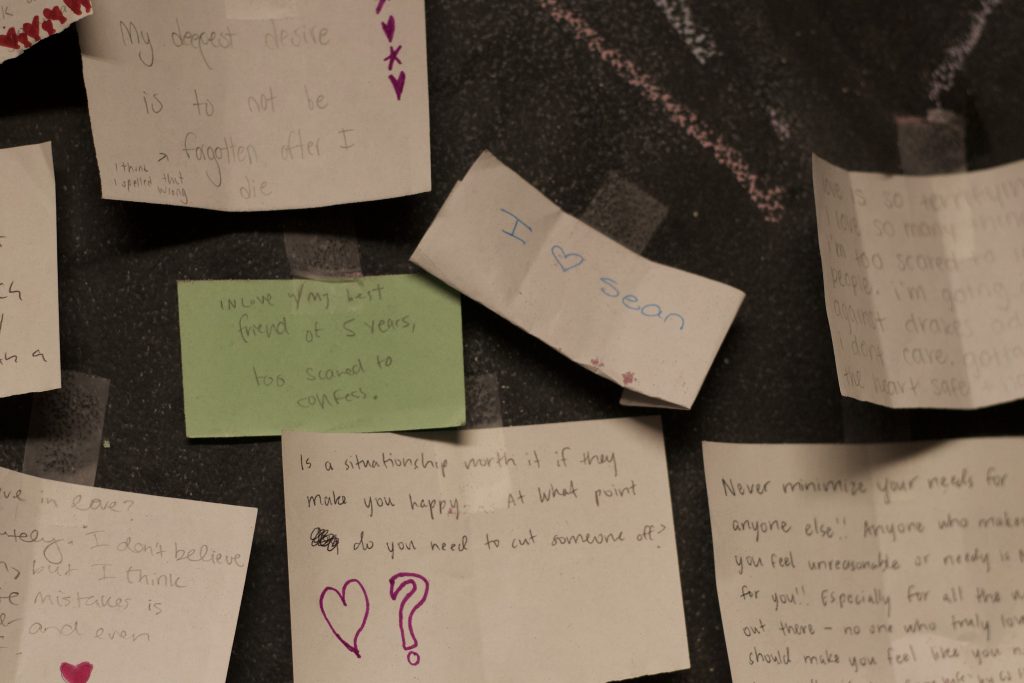 My deepest desire
is to not be
forgotten after I
die
I think
I spelled that
wrong
I ♡ sean
love is so terrifying
I love so many
i'm too scared to
people. i'm going
against drakes
I dont care.
the heart safe
in Love w/ my best
friend of 5 years,
too scared to
confess.
in love?
I don't believe
but I think
mistakes is
and even
Is a situationship worth it if they
make you happy.... At what point
do you need to cut someone off?
♡ ?
Never minimize your needs for
anyone else!! Anyone who makes
you feel unreasonable or needy is
for you!! Especially for all the
out there – no one who truly
should make you feel like you